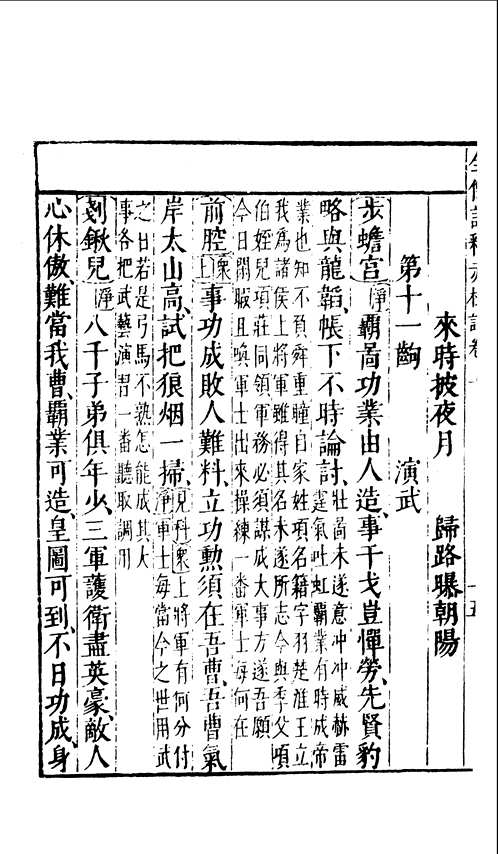 來時披夜月　歸路曝朝陽
第十一齣　演武
步蟾宮 淨 霸啚功業由人造、事干戈豈憚勞、先賢豹
略與龍韜、帳下不時論討、
壯啚未遂意冲冲威赫雷
霆氣吐虹霸業有時成帝
業也知不負舜重瞳自家姓項名籍字羽楚淮王立
我爲諸侯上將軍雖得其名未遂所志今與季父項
伯姪兒項莊同領軍務必須謀成大事方遂吾願
今日閑暇且喚軍士出來操練一番軍士每何在
前腔 衆上 事功成敗人難料、立功勳須在吾曹、吾曹氣
岸太山高、試把狼烟一掃、
見科衆上將軍有何分付
淨軍士每當今之世用武
之日若是弓馬不熟怎能成其大
事各把武藝演習一番聽取調用
剗鍬兒 淨 八千子弟俱年少、三軍護衛盡英豪、敵人
心休傲、難當我曹、霸業可造、皇圖可到、不日功成身